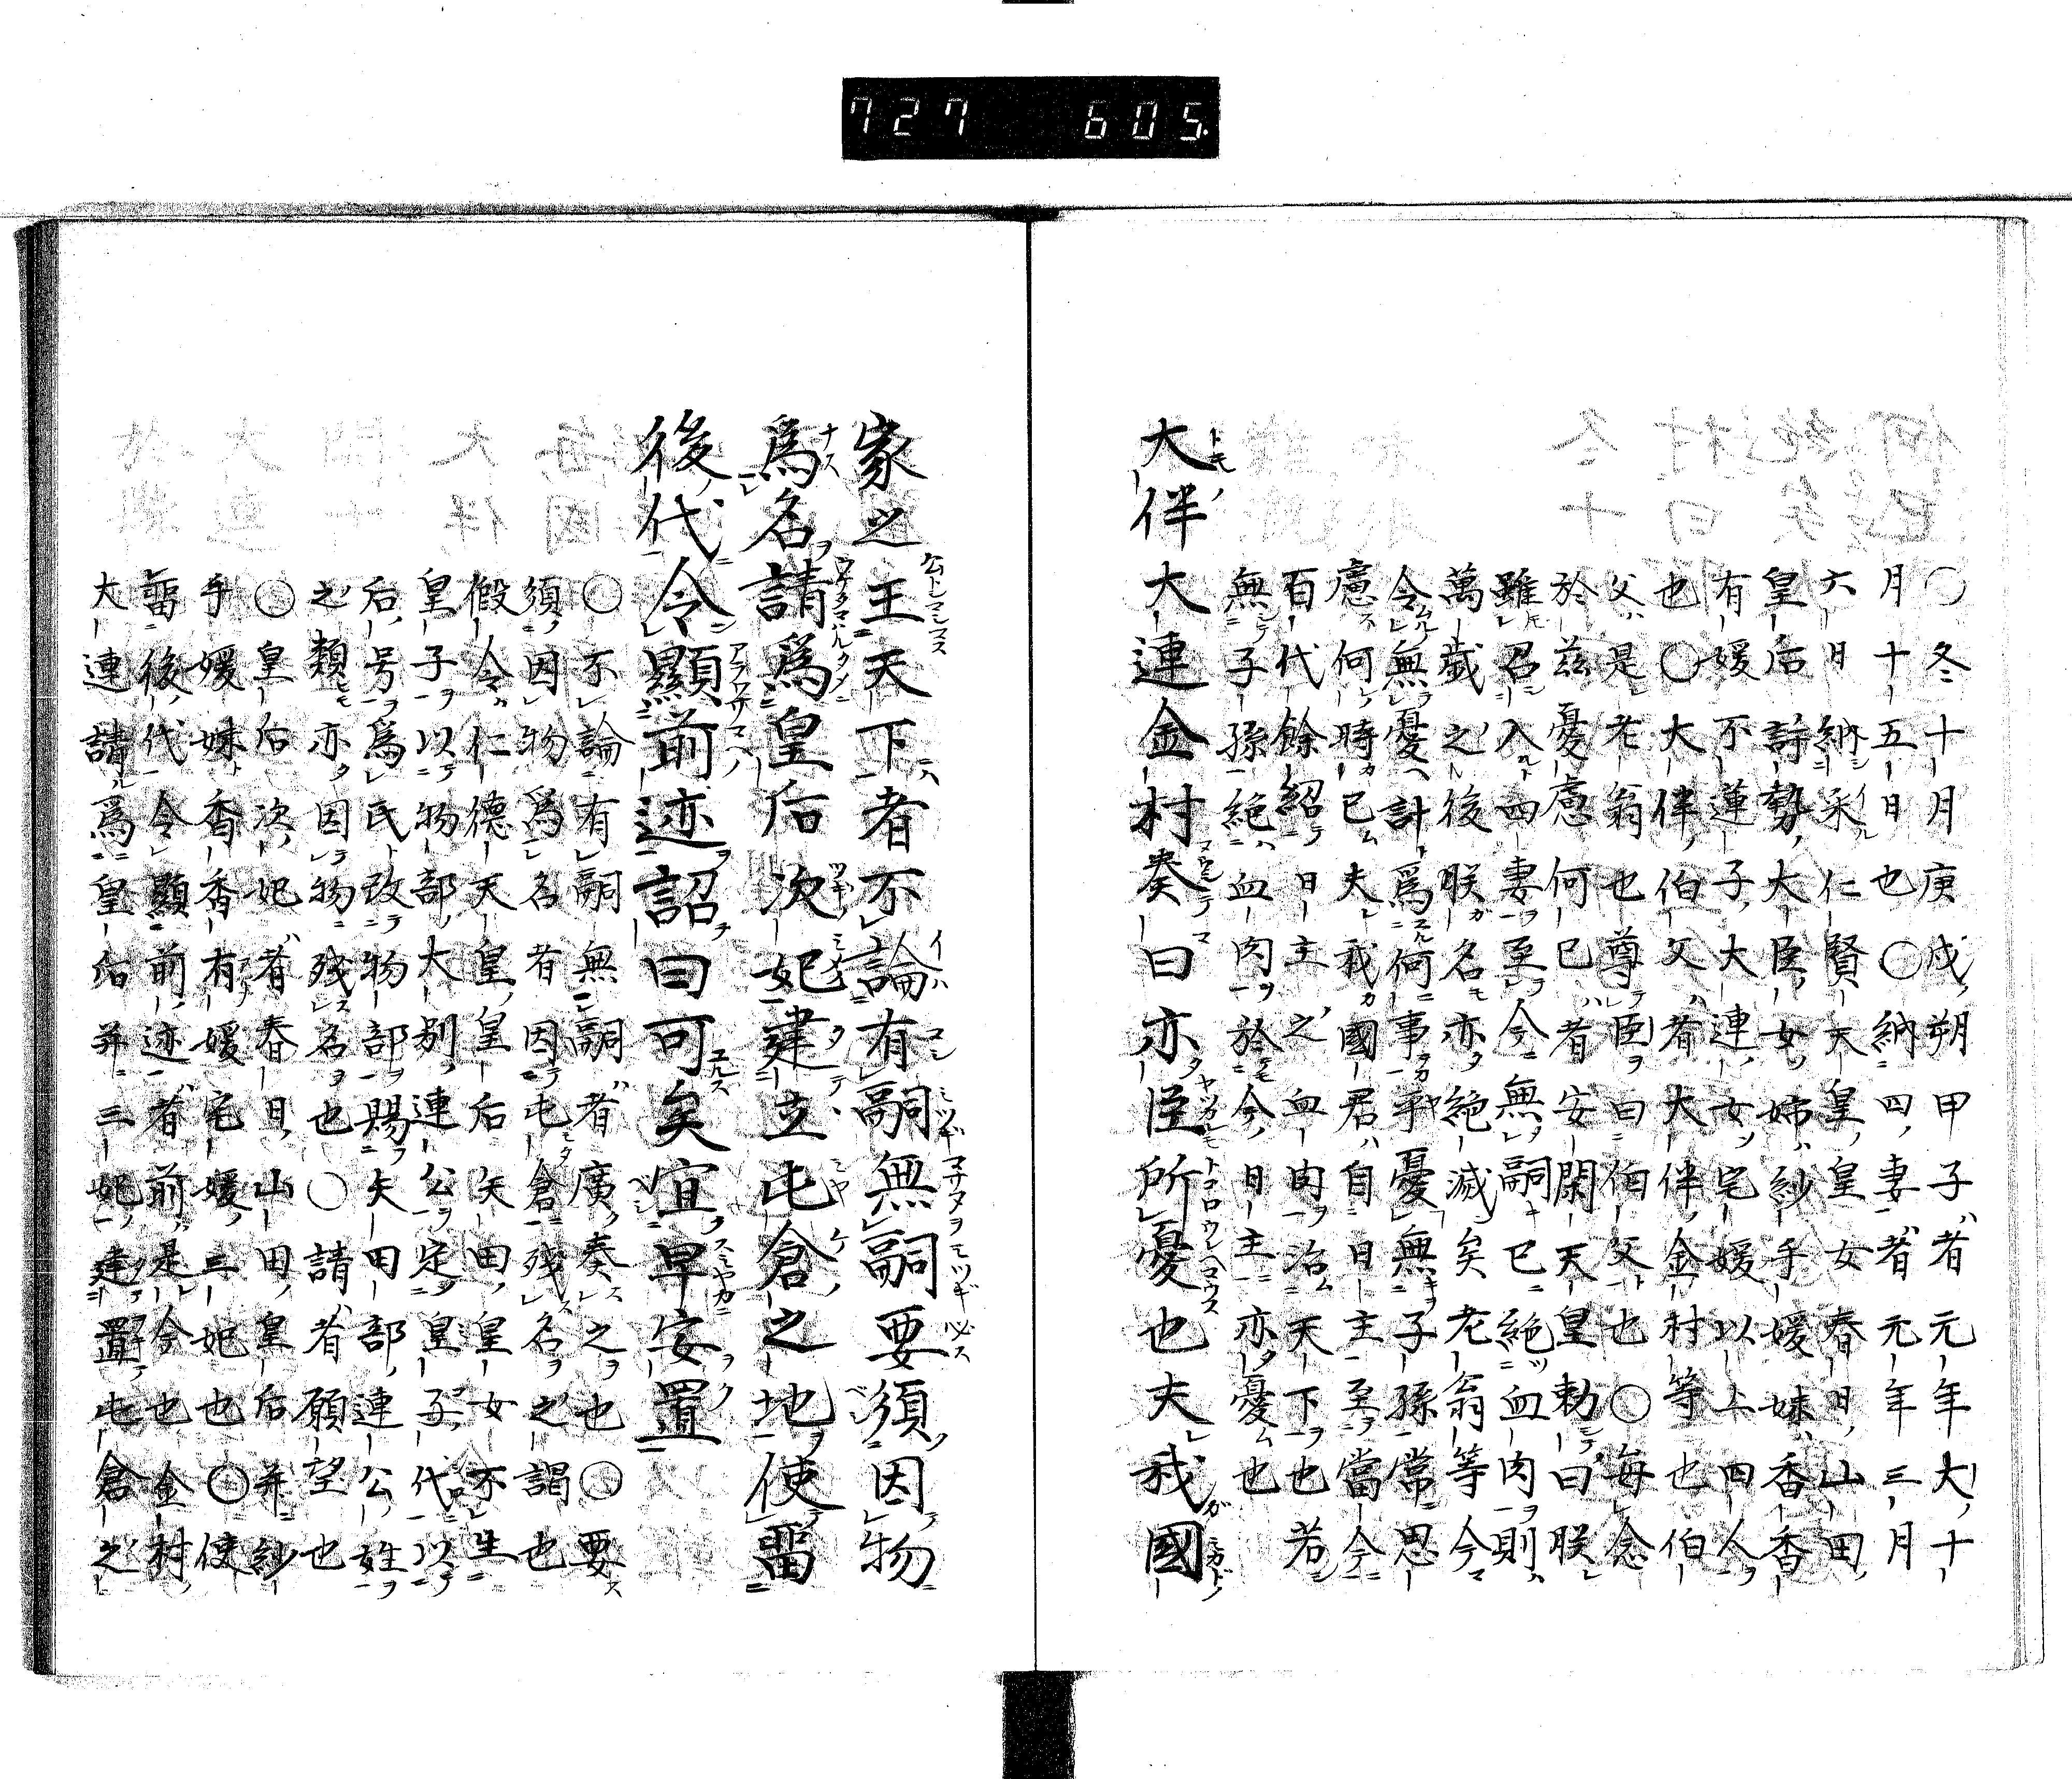 727 605
○冬十月庚戌朔甲子者元年大十
月十五日也○納四妻者元年三月
六日納采仁賢天皇皇女春日山田
皇后許勢大臣女姉紗手媛妹香香
有媛不蓮子大連女宅媛以上四人
也○大伴伯父者大伴金村等也伯
父是老翁也尊臣曰伯父也○毎念
於茲憂慮何已者安閑天皇勅曰朕
雖召入四妻至今無嗣已絶血肉則
萬歳之後朕名亦絶滅矣老翁等今
令無憂計爲何事乎憂無子孫常思
慮何時已夫我國君自日主至當今
百代餘紹日主之血肉治天下也若
無子孫絶血肉於今日主亦憂也
大伴大連金村奏曰亦臣所憂也夫我國
家之王天下者不論有嗣無嗣要須因物
爲名請爲皇后次妃建立屯倉之地使畱
後代令顯前迹詔曰可矣宜早安置
○不論有嗣無嗣者廣奏之也○要
須因物爲名者因屯倉残名之謂也
假令仁德天皇皇后矢田皇女不生
皇子以物部大别連公定皇子代以
后号爲氏改物部賜矢田部連公姓
之類亦因物残名也○請者願望也
○皇后次妃者春日山田皇后并紗
手媛妹香香有媛宅媛三妃也○使
畱後代令顯前迹者前是令也金村
大連請爲皇后并三妃建置屯倉之